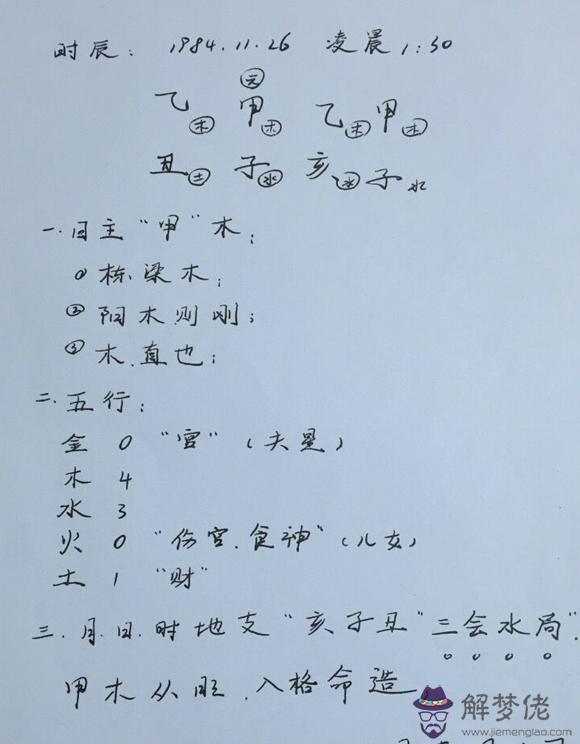 时辰: 1984.11.26 凌晨1:30
元
乙木 甲木 乙木 甲木
丑土 子水 亥水 子水
一.日主“甲”木;
① 栋梁木;
② 阳木则刚;
③ 木.直也;
二.五行:
金 0 “宫”(夫星)
木 4
水 3
火 0 “伤宫.食神”(儿女)
土 1 “财”
三.月.日.时地支“亥子丑”三会水局”.
甲木从旺.入格命造
解梦佬
www.jiemenglao.com